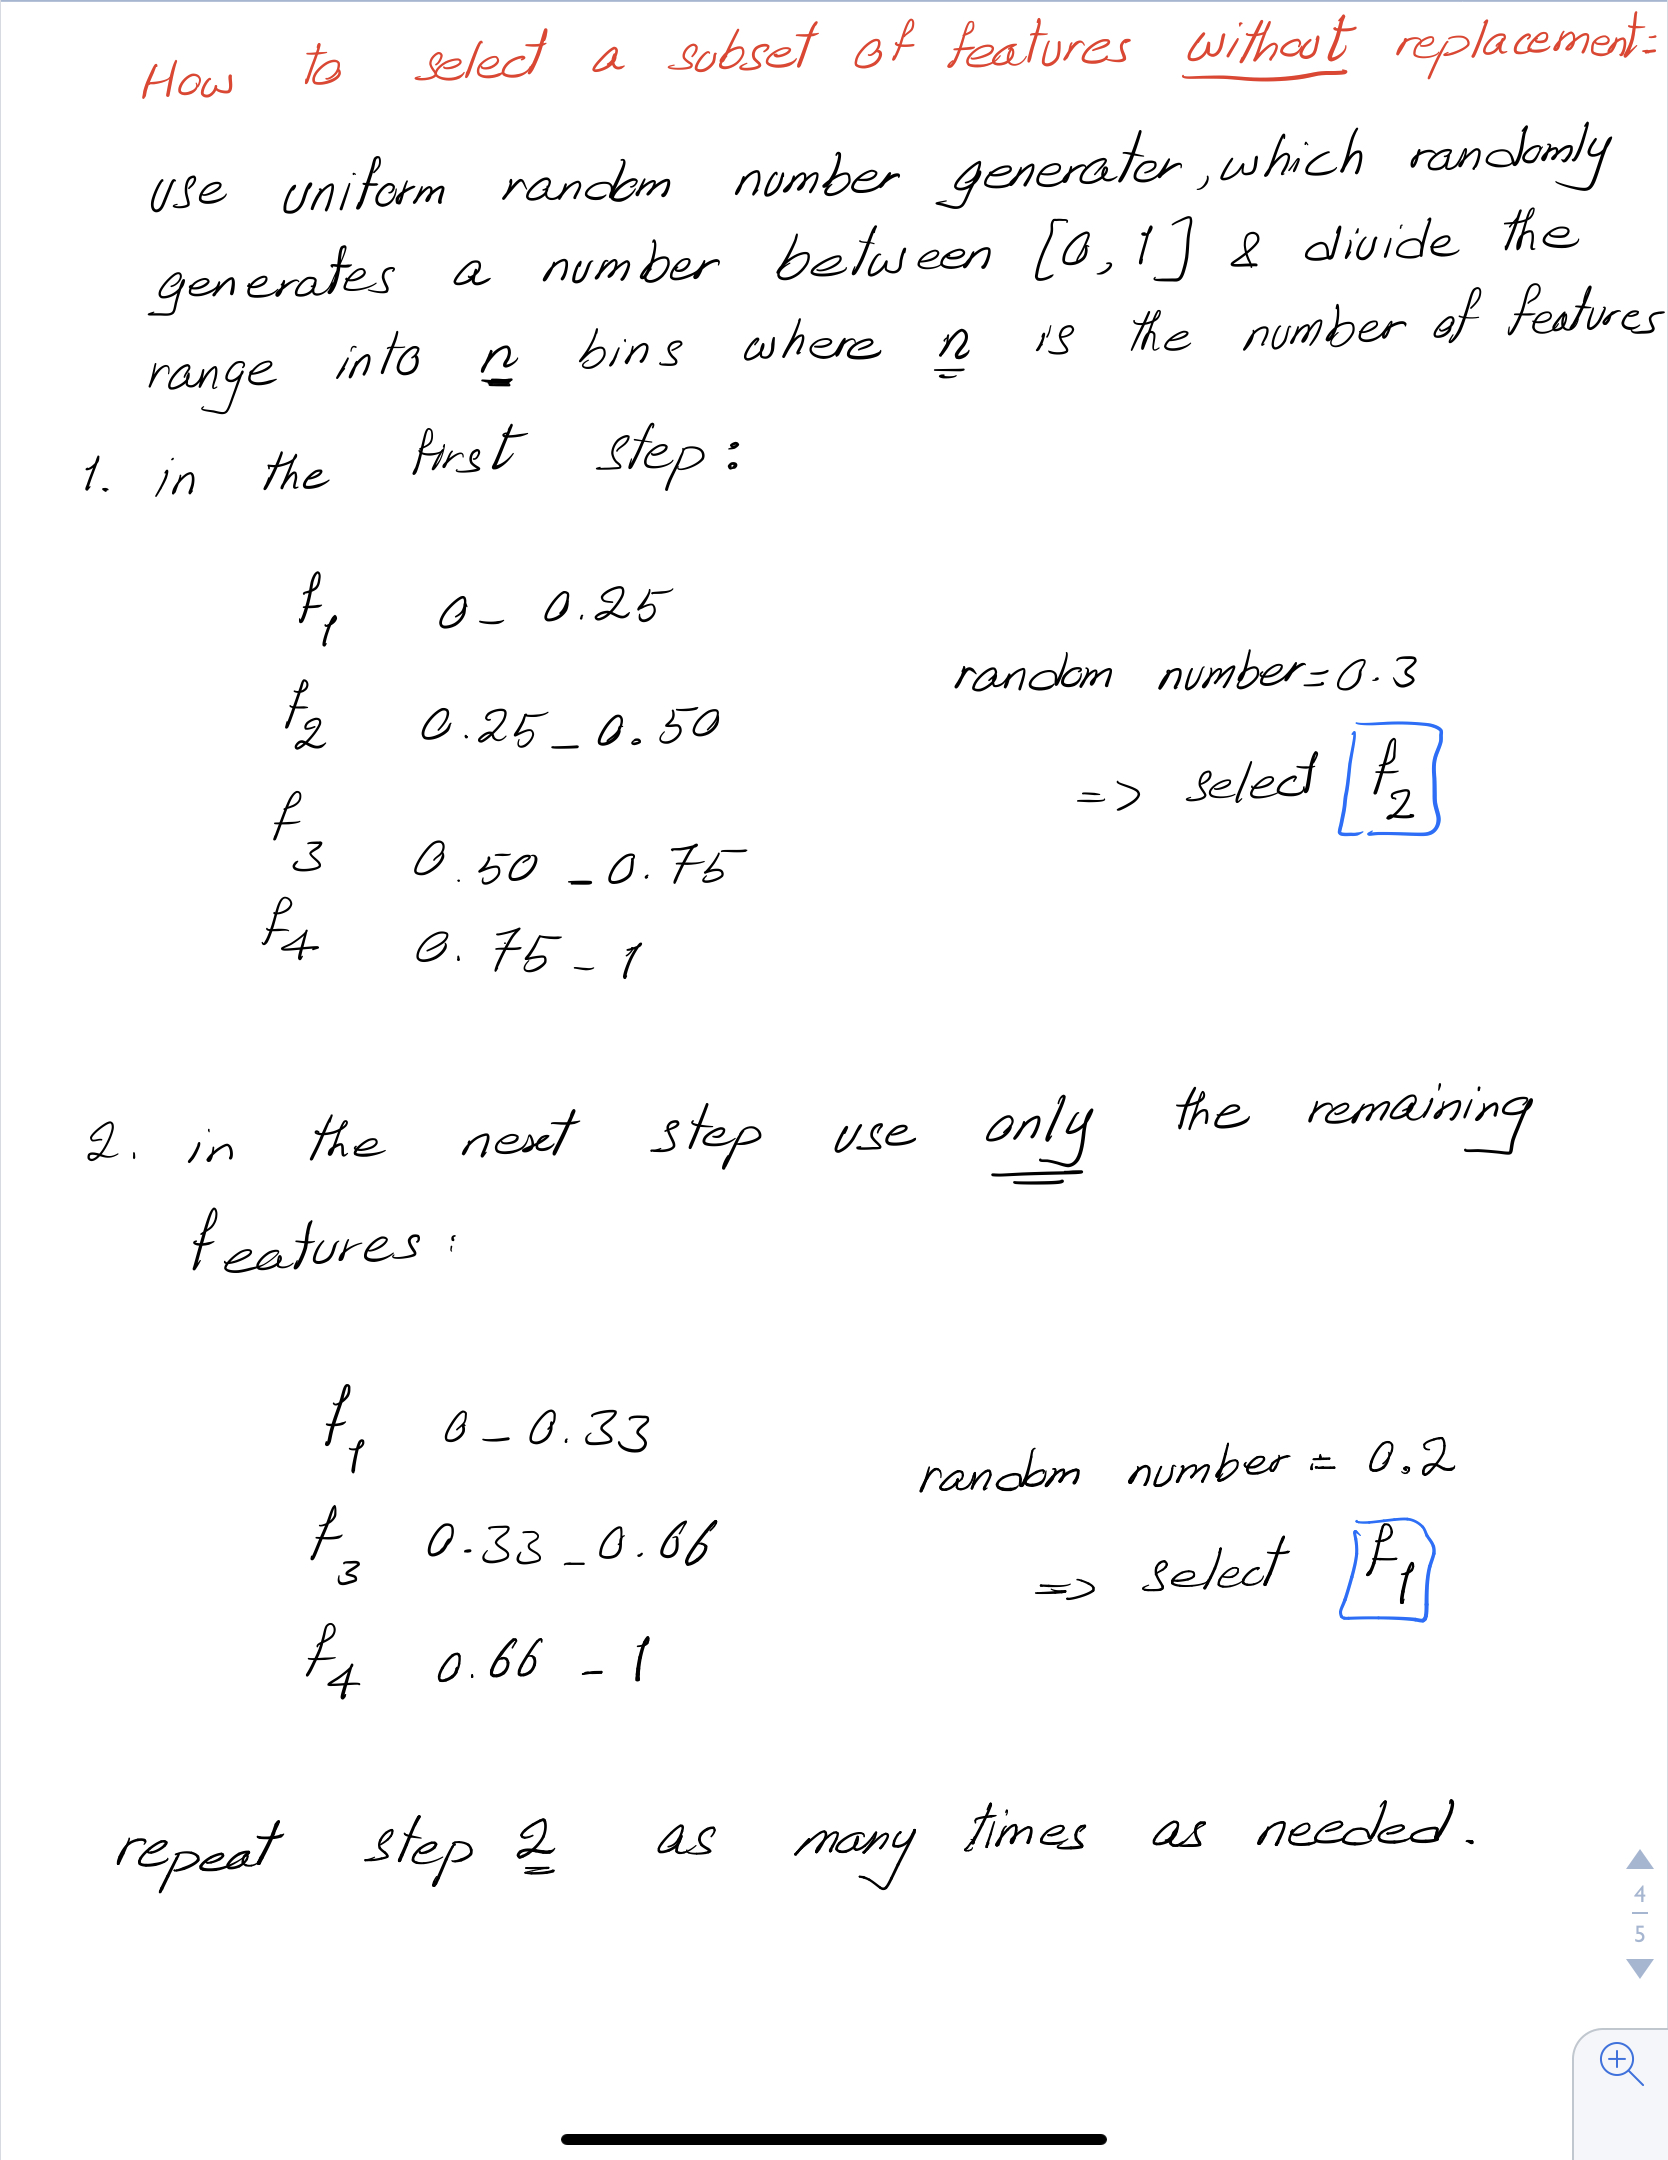 How to select a subset of features without replacement:
use uniform random number generater, which randomly
generates a number between [0, 1] & divide the
range into n bins where n is the number of features
1. in the first step:
f1 0 - 0.25
random number = 0.3
f2 0.25 - 0.50
=> select f2
f3 0.50 - 0.75
f4 0.75 - 1
2. in the next step use only the remaining
features:
f1 0 - 0.33
random number = 0.2
f3 0.33 - 0.66
=> select f1
f4 0.66 - 1
repeat step 2 as many times as needed.
4
5